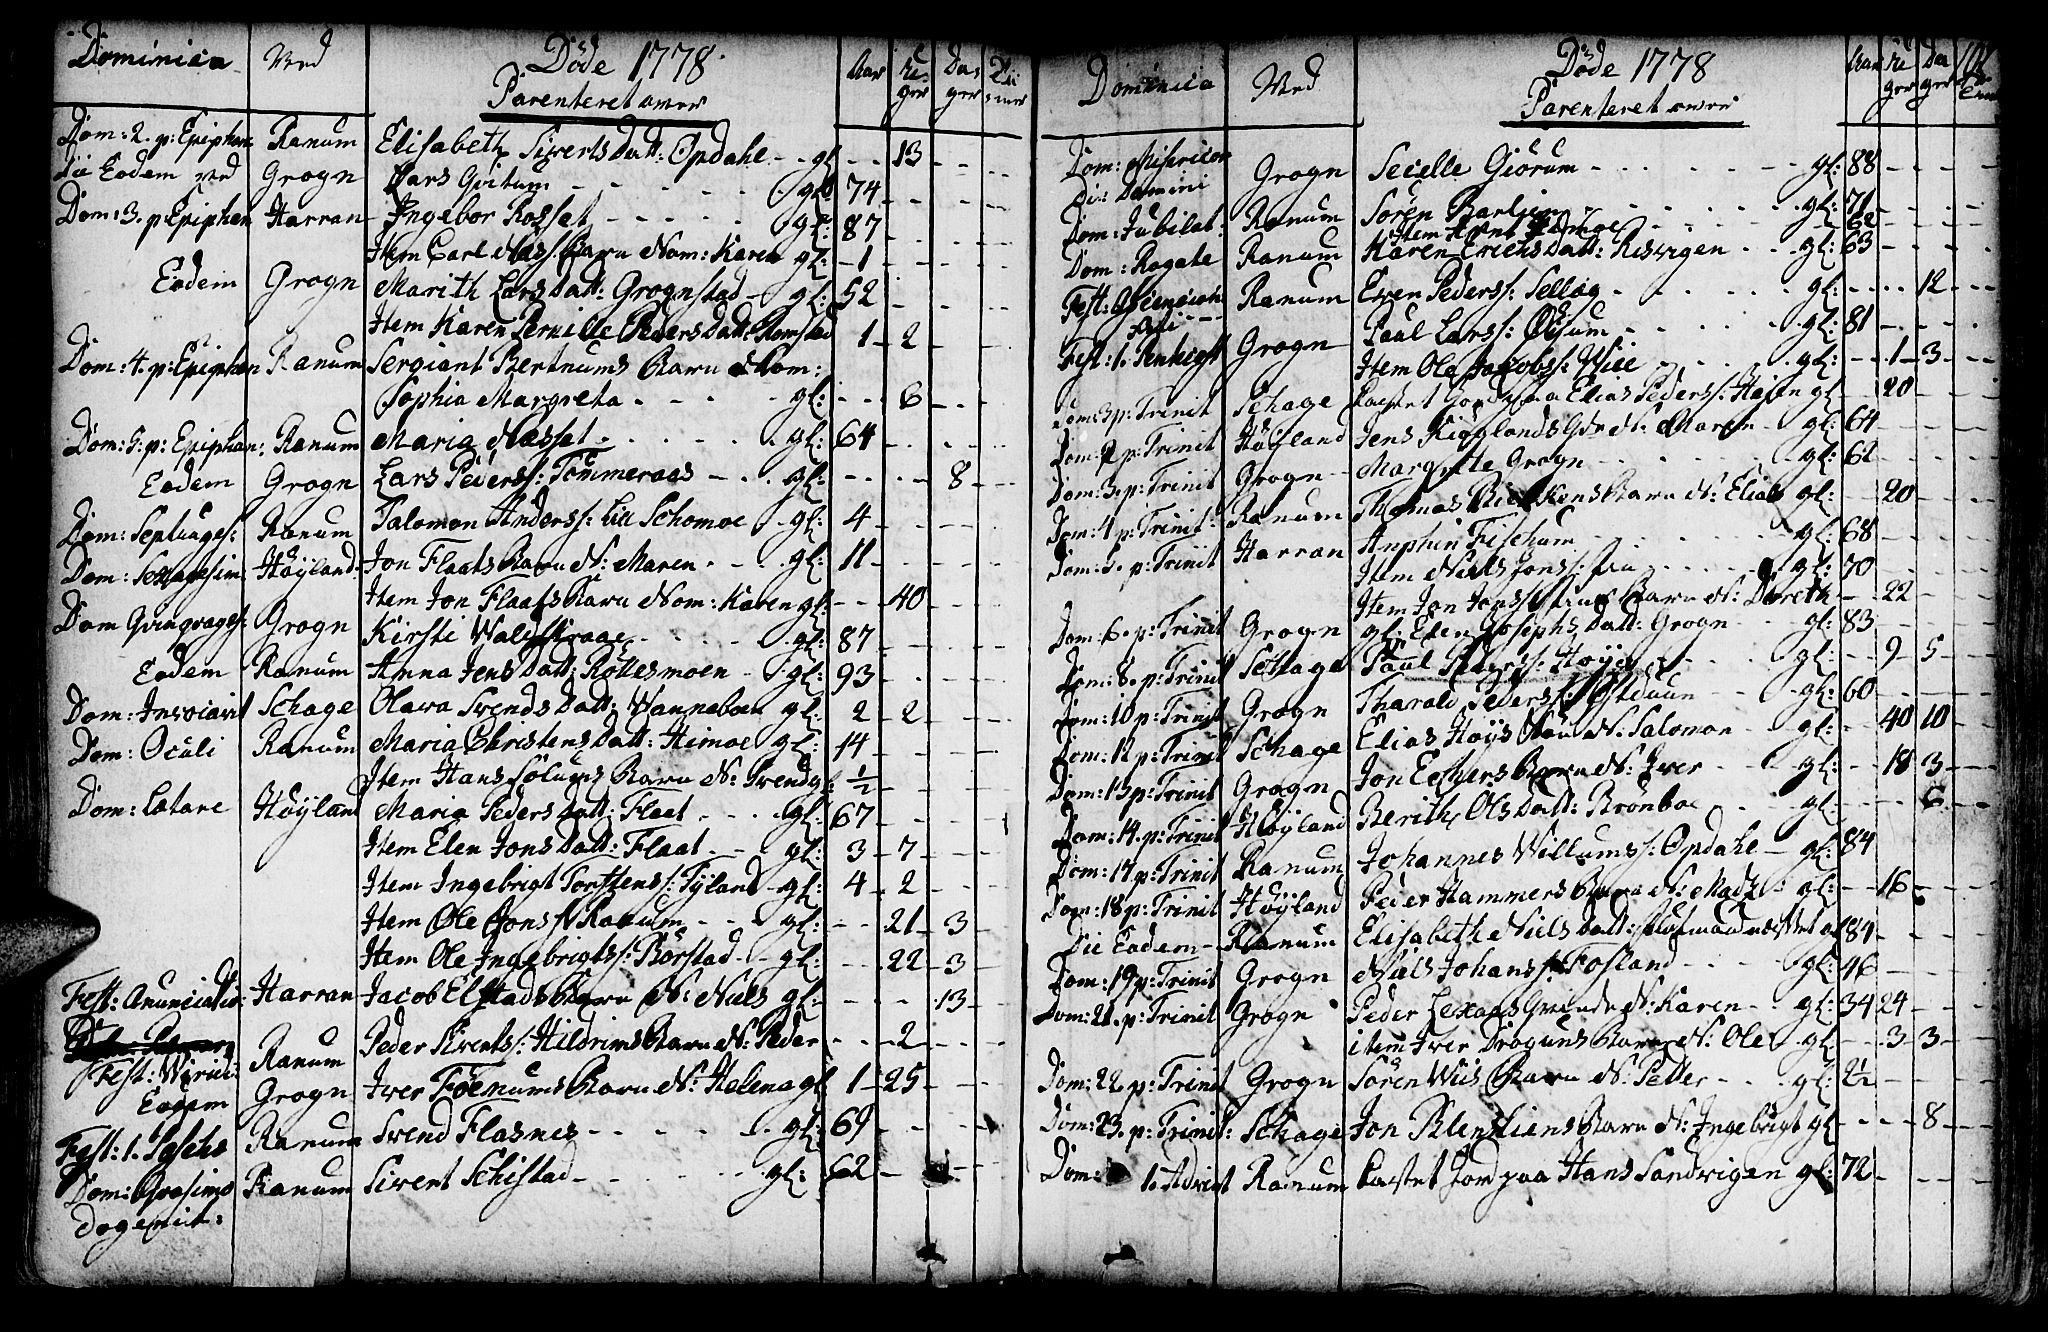 Dominica Ved Döde 1778 Aar Da
Parenteret over
Dom: 2. p: Epiphan: Ranum Elisabeth Siverts Datt: Opdahl - - gl: - - 13
Die Eodem ved Grogn Lars Gritum - - - gl: 74
Dom: 3. p: Epiphan Harran Ingebor Rosset - - - gl: 87
Item Carl Barn Nom: Karen gl: 1
Eodem Grogn Marith Lars Datt: Grognstad - gl: 52
Item Karen Pernille Peders Datt: Romstad 1 - 2
Dom: 4. p: Epiphan Ranum Sergiant Bertnums Barn Nom:
Sophia Margreta - - - gl: - - 6
Dom: 5. p: Epiphan: Ranum Maria Næsset - - - gl: 64
Eodem Grogn Lars Peders: Tömmeraas - - gl: - - 8
Dom: Septuages: Ranum Salomon Anders: Lill Schomoe - gl: 4
Dom: Sexagesim: Höyland: Jon Flaats Barn N: Maren - - gl: 11
Item Jon Flaats Barn Nom: Karen gl: - - 40
Dom Qvinqvages: Grogn Kirsti - - - gl: 87
Eodem Ranum Anna Jens Datt: Röttesmoen - gl: 93
Dom: Invocavit Schage Olava Svends Datt: gl: 2 - 2
Dom: Oculi Ranum Maria Christens Datt: Himoe gl: 14
Item Hans Solums Barn N: Svend gl: 1/2
Dom: Lætare Höyland Maria Peders Datt: Flaat - - gl: 67
Item Elen Jons Datt: Flaat - - gl: 3 - 7
Item Ingebrigt Torstens: Tyland - gl: 4 - 2
Item Ole Jons: Ranum - - - gl: - - 21 - 3
Item Ole Ingebrigts: Börstad - - gl: - - 22 - 3
Fest: Anunciatio: Harran Jacob Elstads Barn N: Niels gl: - - 13
Ranum Peder Siverts: Hildrims Barn N: Peder - - - 2
Fest: Viridi:
Eodem Grogn Iver Foenums Barn N: Helena gl: 1 - 25
Fest: 1. Paschs Ranum Svend Flasnes - - - gl: 69
Dom: Qvasimo Ranum Sivert Schistad - - - gl: 62
dogenit:
Dominica Ved Döde 1778
Parenteret over
Dom: Misericor Grogn Secelle Giörum - - - gl: 88
Domini
Dom: Jubilat: Ranum Sören - - - gl: 71
Item 62
Dom: Rogate Ranum Karen Erichs Datt: Risvigen - - gl: 63
Fest: Ranum Even Peders: Selløg - - - gl: - - 12
Fest: 1. Grogn Paul Lars: - - - gl: 81
Item Ole Jacobs: Wiie - - gl: - - 1 - 3
Dom: 3 p: Trinit Schage Castet Jord paa Elias Peders: gl - 20
Dom: 2 p: Trinit Höyland Jens N: Maren - gl: 64
Dom: 3. p: Trinit Grogn Margrette Grogn - - - gl: 62
Dom: 4 p: Trinit: Ranum Thomas Barn N: Elias gl: - 20
Dom: 5. p: Trinit Harran Anphin Fischum - - - gl: 68
Item Niels Jons: - - - gl: 70
Item Jon Jons: Barn N: Doreth - 22
Dom: 6. p: Trinit Grogn gl: Elen Josephs Datt: Grogn - gl: 83
Dom: 8. p: Trinit Schage Paul Peders: - - - gl: - - 9 - 5
Dom: 10 p: Trinit Grogn Tharald Peders: - - gl: 60
Dom: 12 p: Trinit Schage Elias Höys Barn N: Salomon - gl: - 40 10
Dom: 13 p: Trinit Grogn Jon Eckers Barn N: Iver - - gl: - 18 3
Dom: 14. p: Trinit Höyland Berith Ols Datt: Brönboe - - gl: - - 6
Dom: 17 p: Trinit Ranum Johannes Willums: Opdahl - gl: 84
Dom: 18 p: Trinit Höyland Peder Hammers Barn N: Mads: gl: - 16
Die Eodem - Ranum Elisabeth Niels Datt: 84
Dom: 19 p: Trinit Grogn Niels Johans: Fosland - - - gl: 46
Dom: 21. p: Trinit Grogn Peder N: Karen - gl: 34 24
item Iver Barn N: Ole gl: - 3 - 3
Dom: 22. p: Trinit Grogn Sören Wiis Barn N: Petter - - gl: 2½
Dom: 23. p: Trinit: Schage Jon Barn N: Ingebrigt gl - - 8
Dom: 1. Advent Ranum Castet Jord paa Hans Sandvigen gl: 72